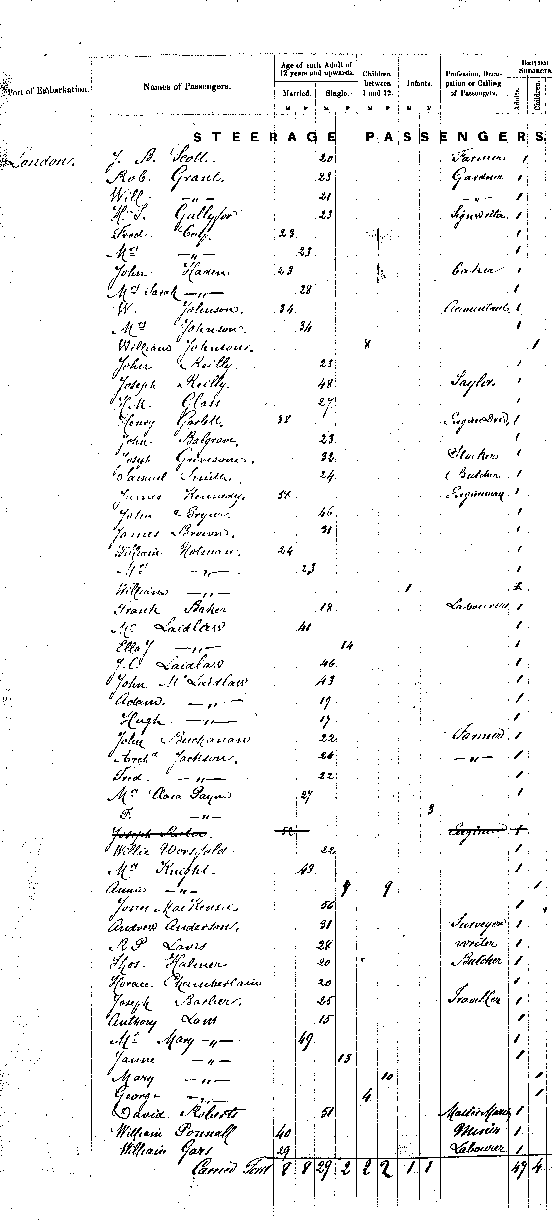 Port of Embarkation. Names of Passengers. Age of each Adult of 12 years and upwards. Children between 1 and 12. Infants. Profession, Occupation or Calling of Passengers.
Married. Single. Adults. Children
M F M F M F M F
STEERAGE PASSENGERS
London. J. B. Scott. 20 Farmer 1
Rob. Grant. 23 Gardner 1
Will. -"- 21 -"- 1
H. S. 23 Signwriter 1
Fred 23 1
Mrs -"- 23 1
John 23 Baker 1
Mrs Sarah -"- 28 1
W. Johnson. 34 Accountant 1
Mrs Johnson. 34 1
William Johnson. 8 1
John Reilly. 23 1
Joseph Reilly. 48 Taylor 1
Glass 27 1
Henry 38 1
John Balgrove. 23 1
Joseph 32 Stoker 1
Samuel Smith. 24 Butcher 1
James Kennedy. 1
John 46 1
James Brown. 31 1
William Holman. 24 1
Mrs -"- 23 1
William -"- 1
Frank Baker 18 Labourer 1
Laidlaw 41 1
Ella J -"- 14 1
Laidlaw 46 1
John Mc Laidlaw 43 1
Adam -"- 19 1
Hugh -"- 17 1
John Buchanan 22 Farmer 1
Archd Jackson. 26 -"- 1
Fred -"- 22 1
Mrs Payn 27 1
F. -"- 3
Joseph
Willie Worsfold 22 1
Mrs Knight. 43 1
Annie -"- 9 1
MacKenzie 56 1
Andrew Anderson. 31 Surveyor 1
Laws 28 Writer 1
Thos. 20 Butcher 1
Horace Chamberlain 20 1
Joseph Barber. 25 Traveller 1
Anthony Laws 15 1
Mrs Mary -"- 49 1
-"- 13 1
Mary -"- 10 1
George -"- 4 1
David Roberts 51 1
William 40 1
William 29 Labourer 1
Carried Forwd 8 8 29 2 2 2 1 1 49 4